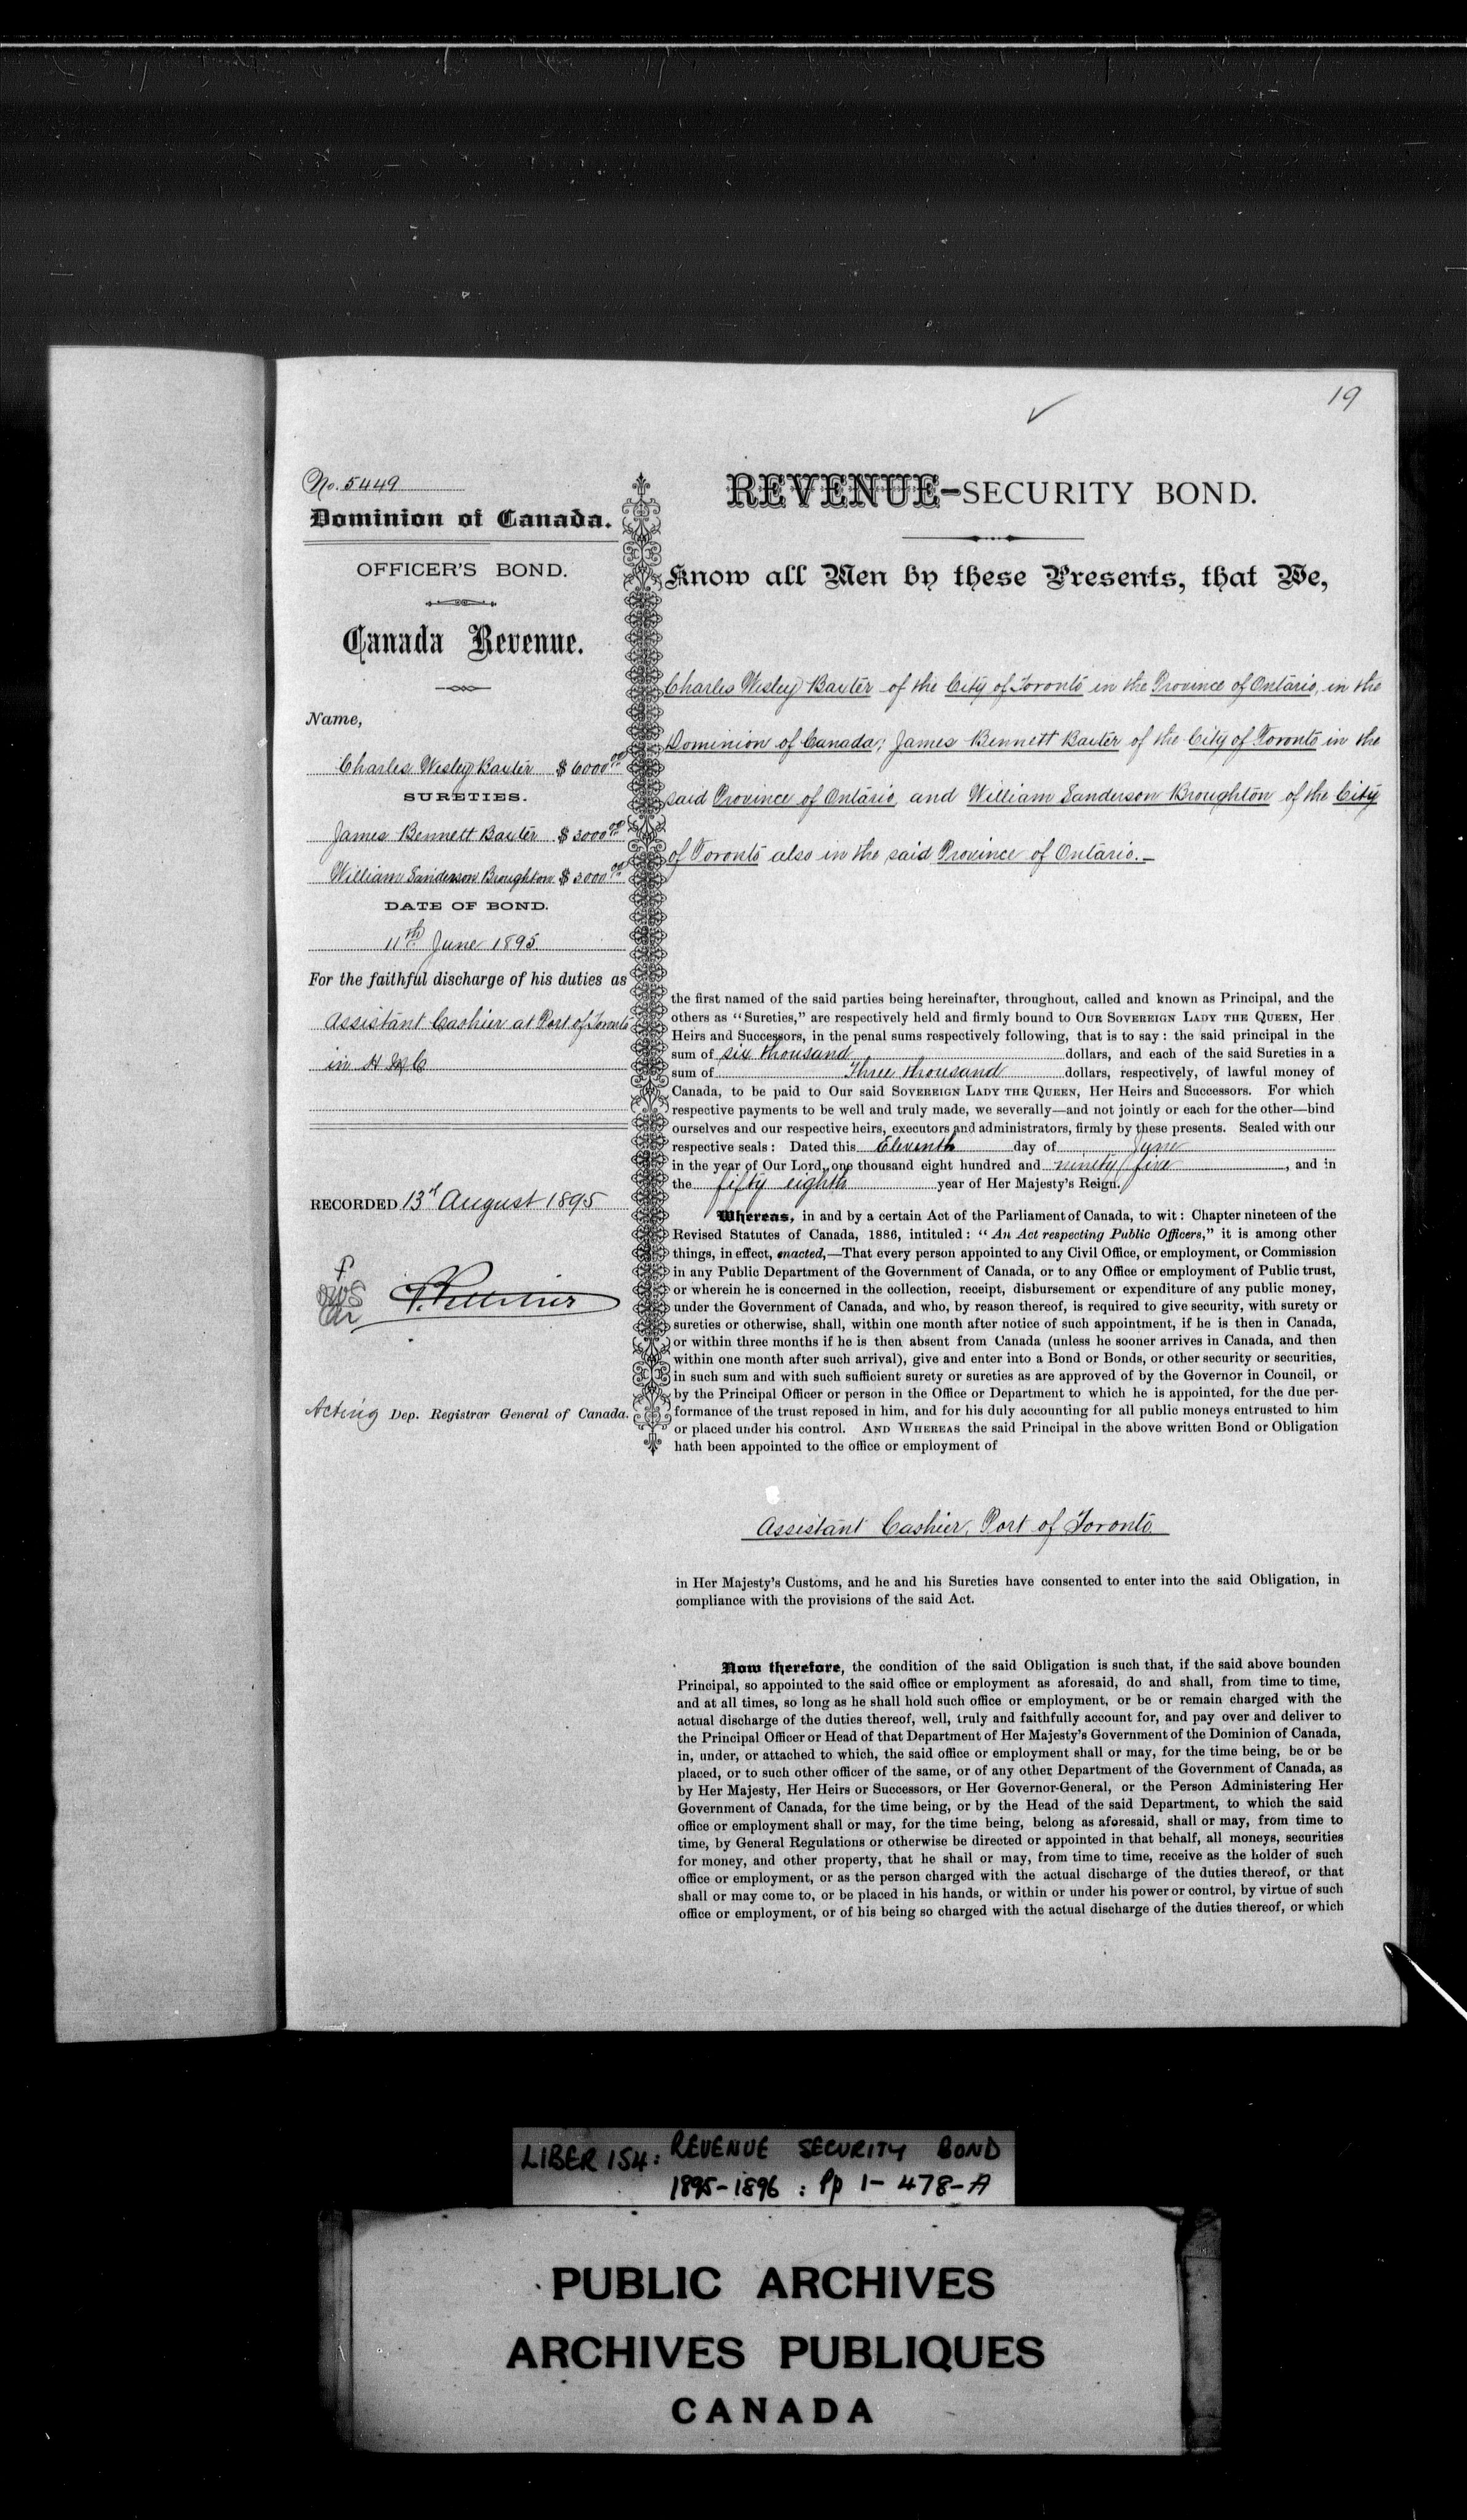 19
No. 5449
Dominion of Canada.
OFFICER'S BOND.
Canada Revenue.
Name,
Charles Wesley Baxter $6000 00
SURETIES.
James Bennett Baxter $3000 00
William Sanderson Broughton $3000 00
DATE OF BOND.
11th June 1895
For the faithful discharge of his duties as
Assistant Cashier at Port of Toronto
in H M C
RECORDED 13th August 1895
Acting Dep. Registrar General of Canada.
REVENUE-SECURITY BOND.
Know all Men by these Presents, that We,
Charles Wesley Baxter of the City of Toronto in the Province of Ontario, in the
Dominion of Canada; James Bennett Baxter of the City of Toronto in the
said Province of Ontario, and William Sanderson Broughton of the City
of Toronto also in the said Province of Ontario.—
the first named of the said parties being hereinafter, throughout, called and known as Principal, and the
others as "Sureties," are respectively held and firmly bound to OUR SOVEREIGN LADY THE QUEEN, Her
Heirs and Successors, in the penal sums respectively following, that is to say: the said principal in the
sum of six thousand dollars, and each of the said Sureties in a
sum of Three thousand dollars, respectively, of lawful money of
Canada, to be paid to Our said SOVEREIGN LADY THE QUEEN, Her Heirs and Successors. For which
respective payments to be well and truly made, we severally—and not jointly or each for the other—bind
ourselves and our respective heirs, executors and administrators, firmly by these presents. Sealed with our
respective seals: Dated this Eleventh day of June
in the year of Our Lord, one thousand eight hundred and ninety five, and in
the fifty eighth year of Her Majesty's Reign.
Whereas, in and by a certain Act of the Parliament of Canada, to wit: Chapter nineteen of the
Revised Statutes of Canada, 1886, intituled: "An Act respecting Public Officers," it is among other
things, in effect, enacted,—That every person appointed to any Civil Office, or employment, or Commission
in any Public Department of the Government of Canada, or to any Office or employment of Public trust,
or wherein he is concerned in the collection, receipt, disbursement or expenditure of any public money,
under the Government of Canada, and who, by reason thereof, is required to give security, with surety or
sureties or otherwise, shall, within one month after notice of such appointment, if he is then in Canada,
or within three months if he is then absent from Canada (unless he sooner arrives in Canada, and then
within one month after such arrival), give and enter into a Bond or Bonds, or other security or securities,
in such sum and with such sufficient surety or sureties as are approved of by the Governor in Council, or
by the Principal Officer or person in the Office or Department to which he is appointed, for the due per-
formance of the trust reposed in him, and for his duly accounting for all public moneys entrusted to him
or placed under his control. AND WHEREAS the said Principal in the above written Bond or Obligation
hath been appointed to the office or employment of
Assistant Cashier, Port of Toronto
in Her Majesty's Customs, and he and his Sureties have consented to enter into the said Obligation, in
compliance with the provisions of the said Act.
Now therefore, the condition of the said Obligation is such that, if the said above bounden
Principal, so appointed to the said office or employment as aforesaid, do and shall, from time to time,
and at all times, so long as he shall hold such office or employment, or be or remain charged with the
actual discharge of the duties thereof, well, truly and faithfully account for, and pay over and deliver to
the Principal Officer or Head of that Department of Her Majesty's Government of the Dominion of Canada,
in, under, or attached to which, the said office or employment shall or may, for the time being, be or be
placed, or to such other officer of the same, or of any other Department of the Government of Canada, as
by Her Majesty, Her Heirs or Successors, or Her Governor-General, or the Person Administering Her
Government of Canada, for the time being, or by the Head of the said Department, to which the said
office or employment shall or may, for the time being, belong as aforesaid, shall or may, from time to
time, by General Regulations or otherwise be directed or appointed in that behalf, all moneys, securities
for money, and other property, that he shall or may, from time to time, receive as the holder of such
office or employment, or as the person charged with the actual discharge of the duties thereof, or that
shall or may come to, or be placed in his hands, or within or under his power or control, by virtue of such
office or employment, or of his being so charged with the actual discharge of the duties thereof, or which
LIBER 154: REVENUE SECURITY BOND
1895-1896 : Pp 1- 478-A
PUBLIC ARCHIVES
ARCHIVES PUBLIQUES
CANADA